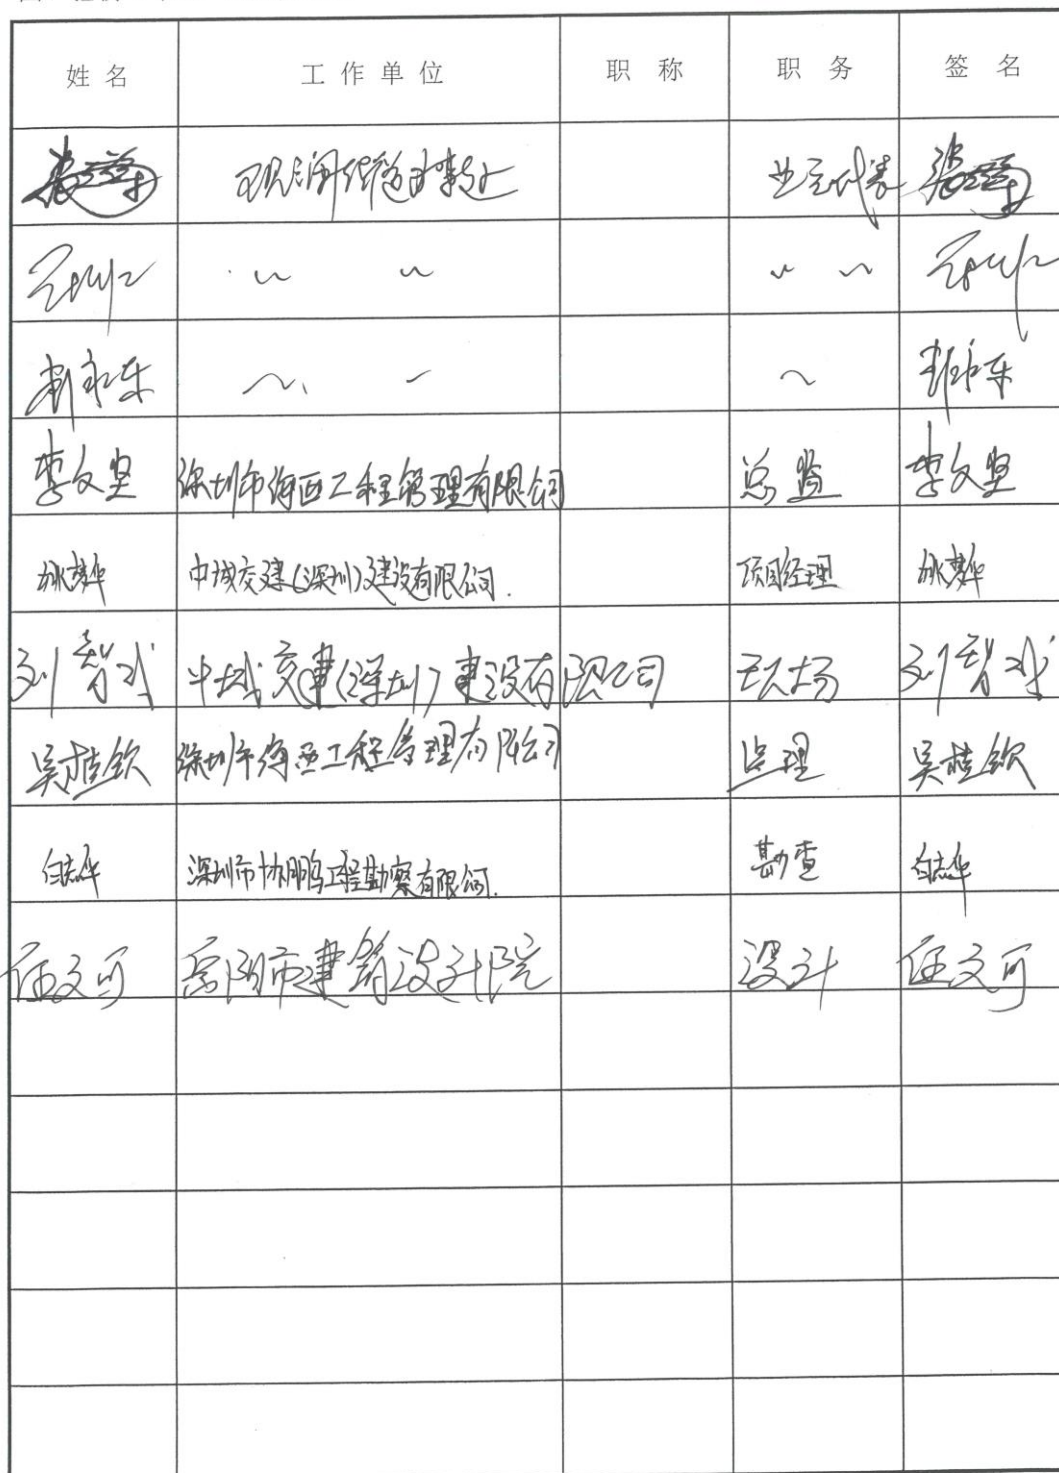 姓名 工作单位 职称 职务 签名
观澜街道办事处 业主代表
李文坚 深圳市海西工程管理有限公司 总监 李文坚
中城交建(深圳)建设有限公司. 项目经理
刘智斌 中城交建(深圳)建设有限公司 现场 刘智斌
吴桂钦 深圳市海西工程管理有限公司 监理 吴桂钦
白志华 深圳市协鹏工程勘察有限公司. 勘查 白志华
伍文可 岳阳市建筑设计院 设计 伍文可